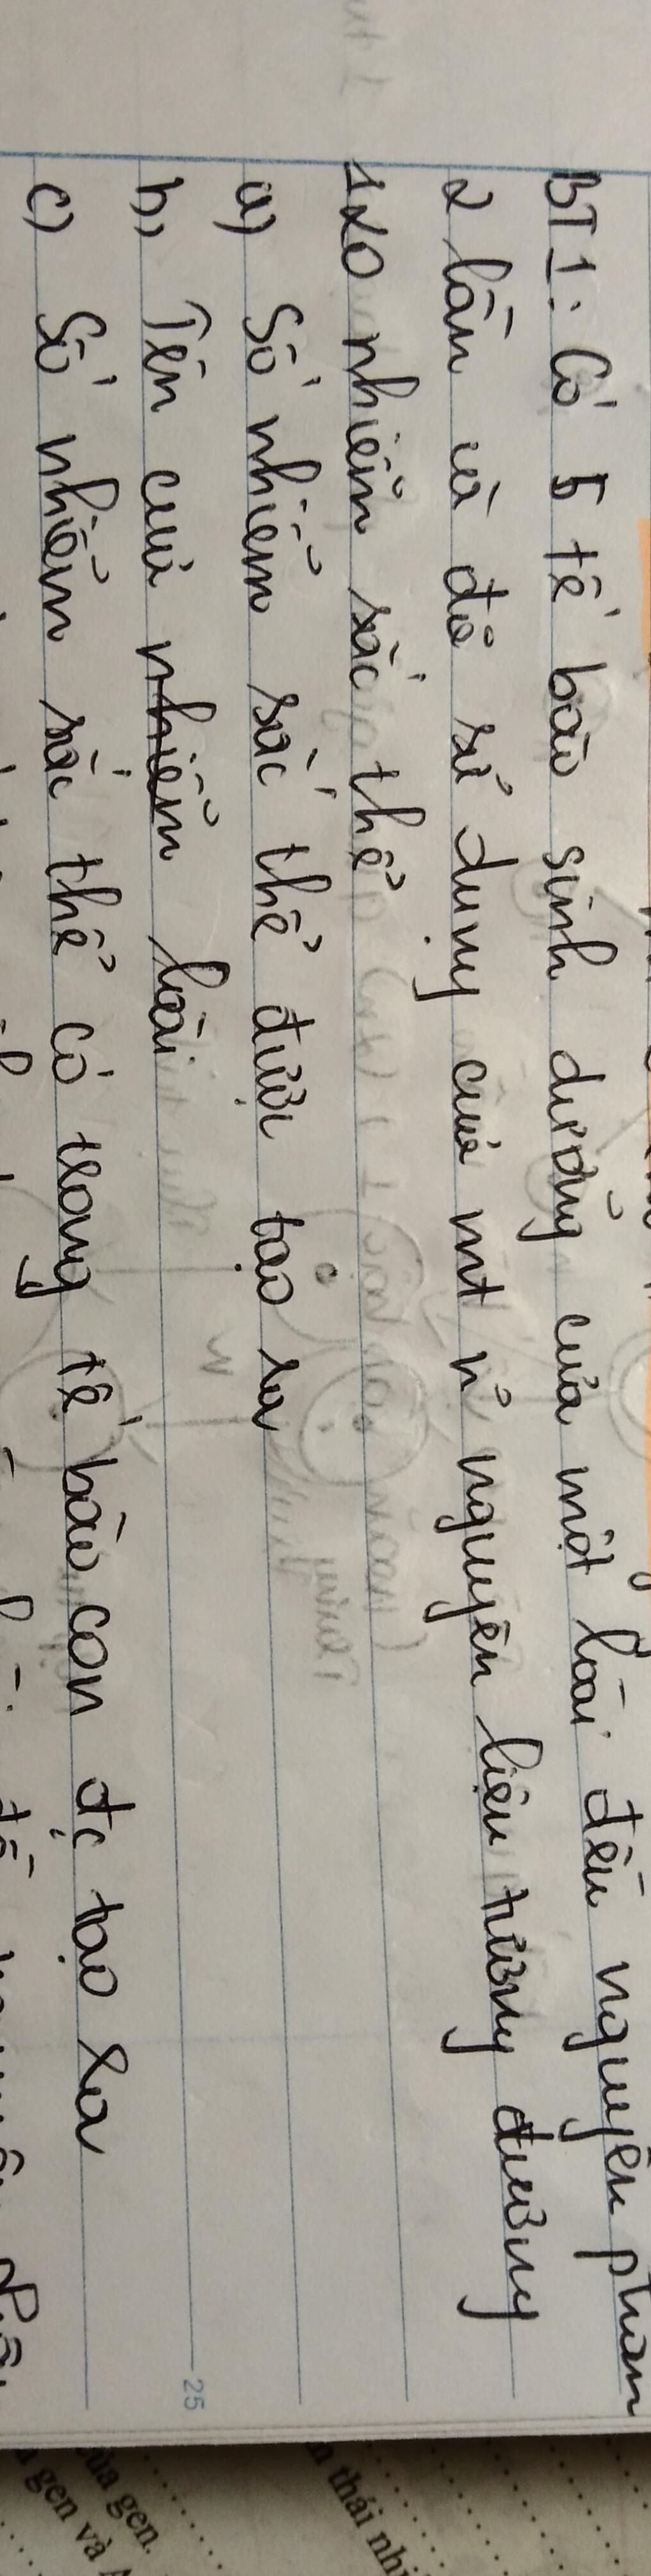 BT1: Có 5 tế bào sinh dưỡng của một loài đều nguyên phân
2 lần và đã sử dụng của mt n' nguyên liệu tương đương
120 nhiễm sắc thể
a) Số nhiễm sắc thể được tạo ra
b, Tên của nhiễm loài
c) Số nhiễm sắc thể có trong tế bào con đc tạo ra
25
của gen.
gen và
thái nhi